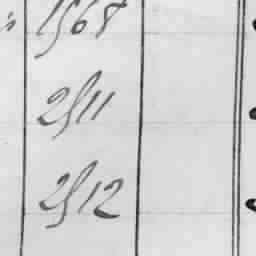 1568
2511
2512